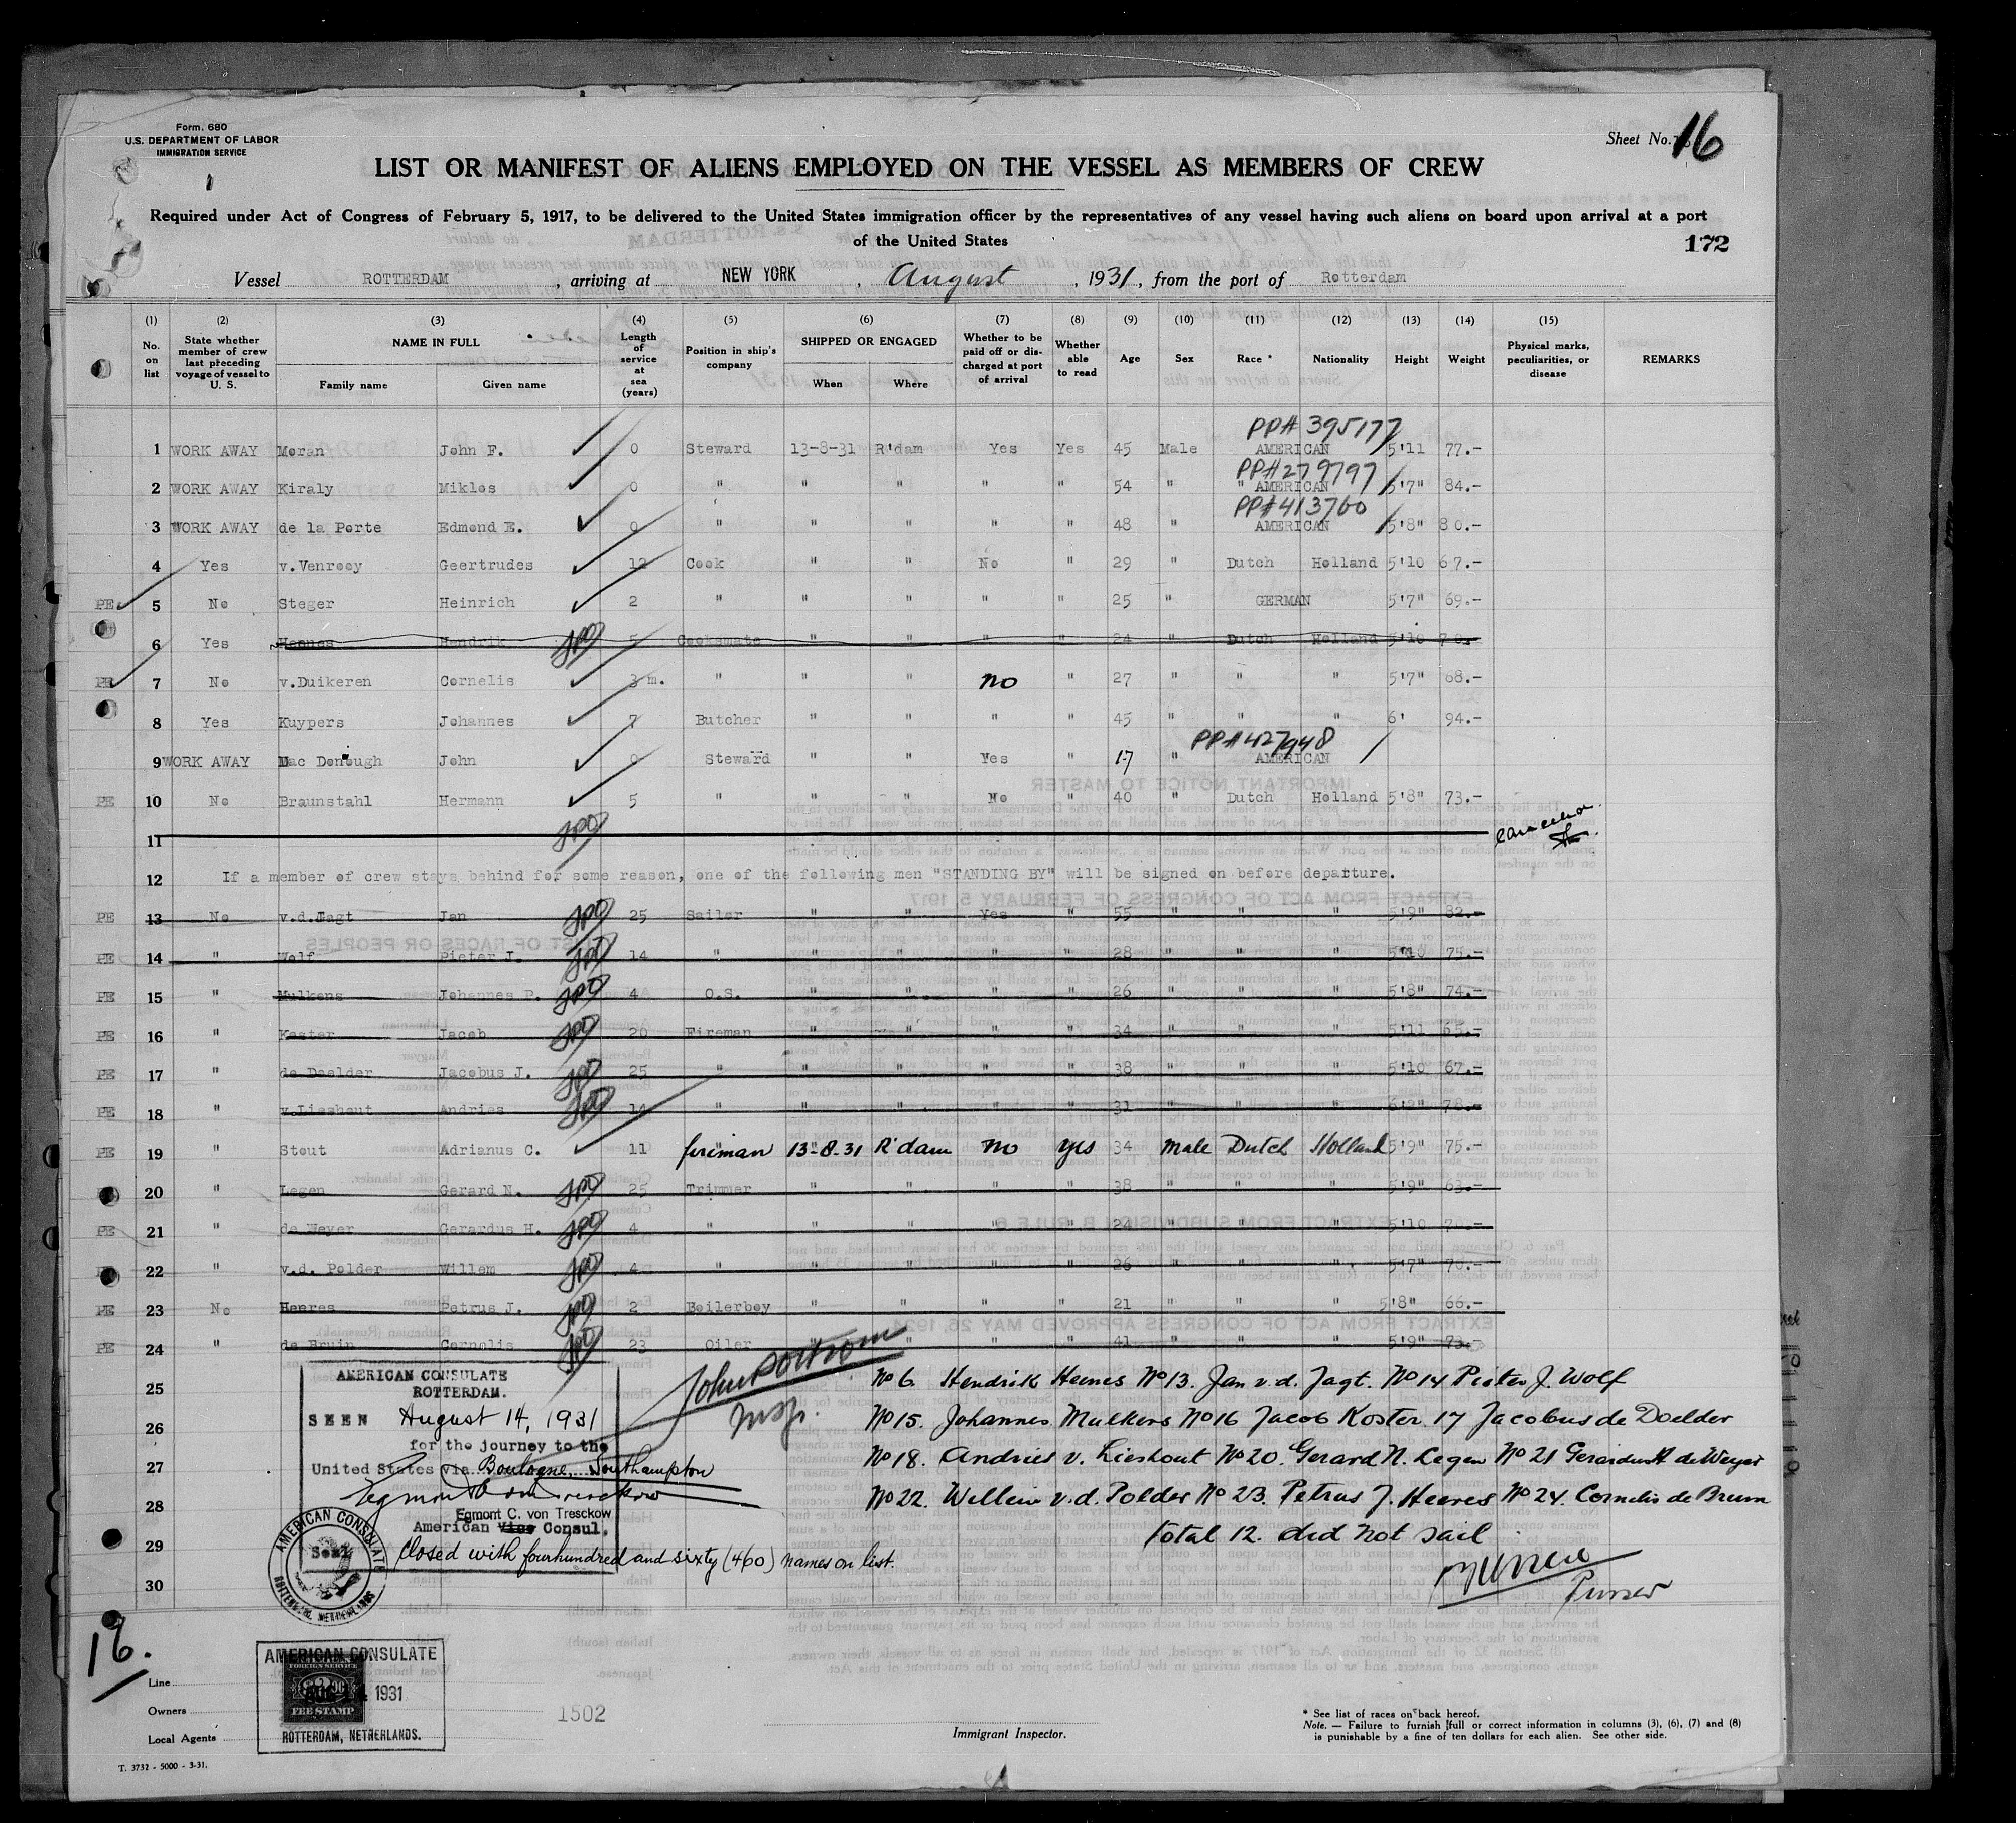 Form. 680
U.S. DEPARTMENT OF LABOR
IMMIGRATION SERVICE
Sheet No. 16
LIST OR MANIFEST OF ALIENS EMPLOYED ON THE VESSEL AS MEMBERS OF CREW
Required under Act of Congress of February 5, 1917, to be delivered to the United States immigration officer by the representatives of any vessel having such aliens on board upon arrival at a port
of the United States
172
Vessel ROTTERDAM, arriving at NEW YORK, August, 1931, from the port of Rotterdam
(1) No. on list
(2) State whether member of crew last preceding voyage of vessel to U. S.
(3) NAME IN FULL
Family name Given name
(4) Length of service at sea (years)
(5) Position in ship's company
(6) SHIPPED OR ENGAGED
When Where
(7) Whether to be paid off or discharged at port of arrival
(8) Whether able to read
(9) Age
(10) Sex
(11) Race *
(12) Nationality
(13) Height
(14) Weight
(15) Physical marks, peculiarities, or disease
REMARKS
PP# 395177
1 WORK AWAY Moran John F. 0 Steward 13-8-31 R'dam Yes Yes 45 Male AMERICAN 5'11 77.-
PP# 279797
2 WORK AWAY Kiraly Miklos 0 " " " " " 54 " " AMERICAN 5'7" 84.-
PP# 413760
3 WORK AWAY de la Porte Edmond E. 0 " " " " " 48 " AMERICAN 5'8" 80.-
4 Yes v.Venrooy Geertrudes 12 Cook " " No " 29 " Dutch Holland 5'10 67.-
PE 5 No Steger Heinrich 2 " " " " " 25 " GERMAN 5'7" 69.-
6 Yes Heenes Hendrik JPO 5 Cooksmate " " " " 24 " Dutch Holland 5'10 70.-
PE 7 No v.Duikeren Cornelis 3 m. " " " no " 27 " " " 5'7" 68.-
8 Yes Kuypers Johannes 7 Butcher " " " " 45 " " " 6' 94.-
PP# 427948
9 WORK AWAY Mac Donough John 0 Steward " " Yes " 17 " AMERICAN
PE 10 No Braunstahl Hermann 5 " " " No " 40 " Dutch Holland 5'8" 73.-
11 JPO
12 If a member of crew stays behind for some reason, one of the following men "STANDING BY" will be signed on before departure.
PE 13 No v.d.Jagt Jan JPO 25 Sailor " " Yes " 55 " " " 5'9" 82.-
PE 14 " Wolf Pieter J. JPO 14 " " " " " 28 " " " 5'10 75.-
PE 15 " Mulkens Johannes P. JPO 4 O.S. " " " " 26 " " " 5'8" 74.-
PE 16 " Koster Jacob JPO 20 Fireman " " " " 34 " " " 5'11 65.-
PE 17 " de Doelder Jacobus J. JPO 25 " " " " " 38 " " " 5'10 67.-
PE 18 " v.Lieshout Andries JPO 14 " " " " " 31 " " " 6'2" 78.-
PE 19 " Stout Adrianus C. 11 fireman 13-8-31 R'dam no yes 34 male Dutch Holland 5'9" 75.-
20 " Legen Gerard N. JPO 25 Trimmer " " " " 38 " " " 5'9" 63.-
PE 21 " de Weyer Gerardus H. JPO 4 " " " " " 24 " " " 5'10
22 " v.d. Polder Willem JPO 4 " " " " " 26 " " " 5'7" 70.-
PE 23 No Heeres Petrus J. JPO 2 Boilerboy " " " " 21 " " " 5'8" 66.-
PE 24 " de Bruin Cornelis JPO 23 Oiler " " " " 41 " " " 5'9" 73.-
25
26
27
28
29
30
AMERICAN CONSULATE
ROTTERDAM.
SEEN August 14, 1931
for the journey to the
United States via Boulogne, Southampton
Egmont C. von Tresckow
Egmont C. von Tresckow
American Vice Consul.
Closed with fourhundred and sixty (460) names on list.
AMERICAN CONSULATE
ROTTERDAM, NETHERLANDS
Seal
Insp.
No 6. Hendrik Heenes No 13. Jan v.d. Jagt. No 14 Pieter J. Wolf
No 15. Johannes Mulkens No 16 Jacob Koster 17 Jacobus de Doelder
No 18. Andries v. Lieshout No 20. Gerard N. Legen No 21 Gerardus H de Weyer
No 22. Willem v.d. Polder No 23. Petrus J. Heeres No 24. Cornelis de Bruin
total 12. did not sail
Purser
16.
Line
Owners
Local Agents
AMERICAN CONSULATE
FOREIGN SERVICE
AUG 14 1931
FEE STAMP
ROTTERDAM, NETHERLANDS.
1502
Immigrant Inspector.
* See list of races on back hereof.
Note. — Failure to furnish full or correct information in columns (3), (6), (7) and (8)
is punishable by a fine of ten dollars for each alien. See other side.
T. 3732 - 5000 - 3-31.